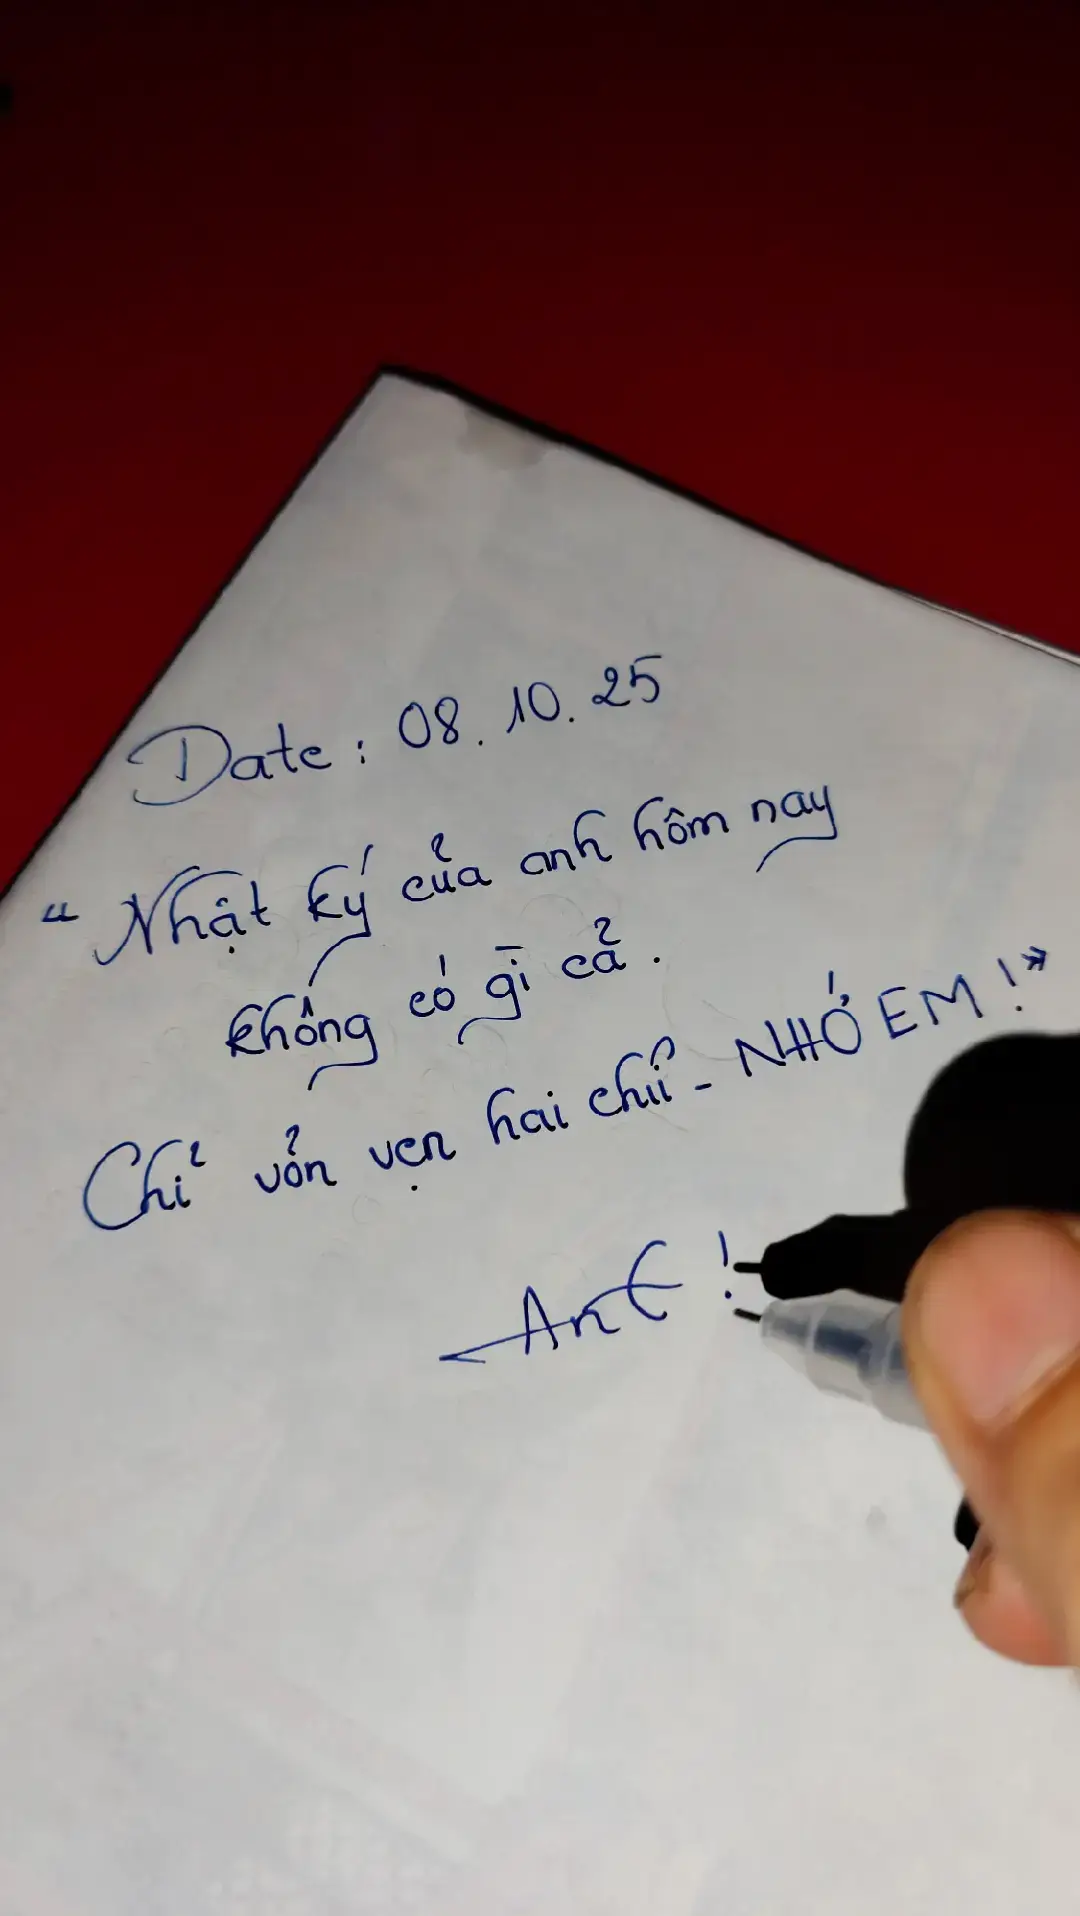 Date: 08.10.25
"Nhật ký của anh hôm nay
không có gì cả.
Chỉ vỏn vẹn hai chữ - NHỚ EM!"